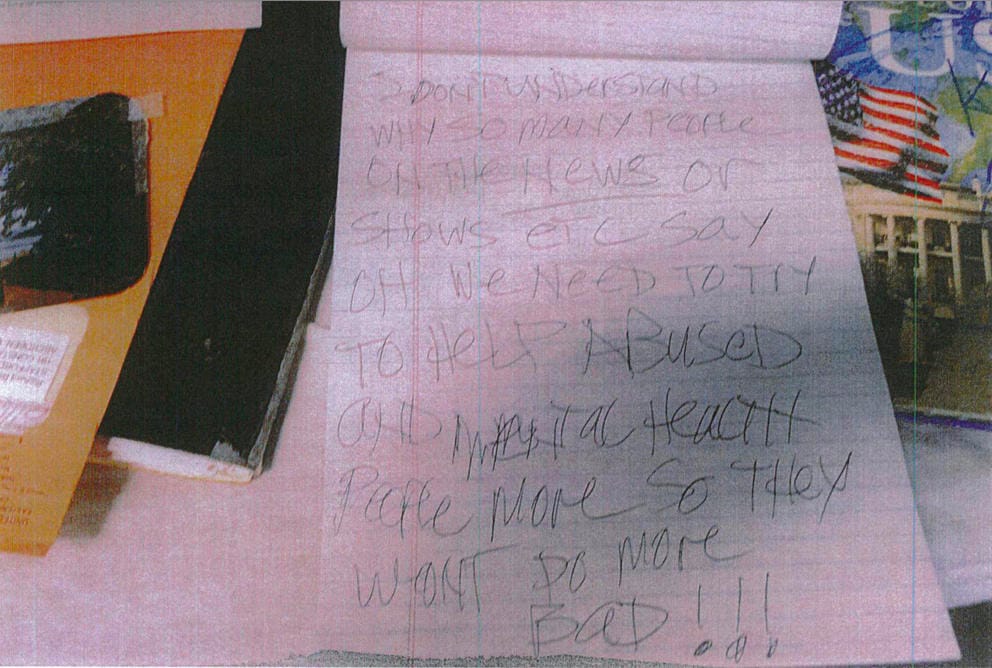 I DONT UNDerSTAND
WHY SO MANY PeoPLe
ON THe News or
SHOWS eTC Say
OH We NeeD TO Try
TO HeLP ABUSeD
AND MeNTaL HeaLTH
PeoPLe More So THey
WONT DO More
BaD!!!
US